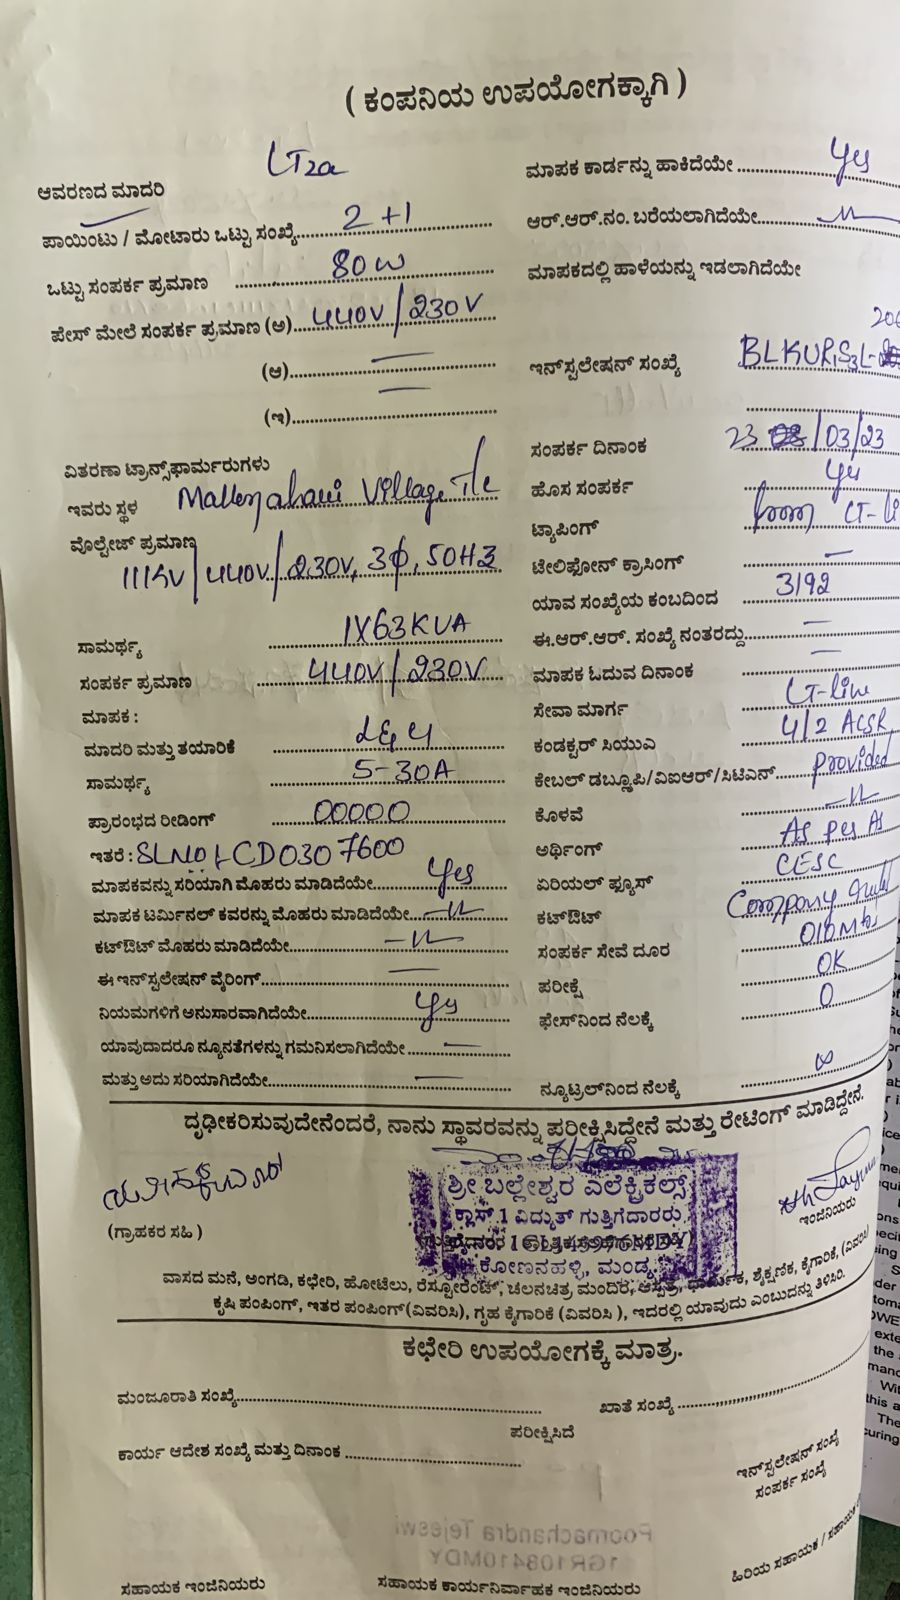 ( ಕಂಪನಿಯ ಉಪಯೋಗಕ್ಕಾಗಿ )
ಆವರಣದ ಮಾದರಿ LT2a
ಪಾಯಿಂಟು / ಮೋಟಾರು ಒಟ್ಟು ಸಂಖ್ಯೆ 2+1
ಒಟ್ಟು ಸಂಪರ್ಕ ಪ್ರಮಾಣ 80W
ಪೇಸ್ ಮೇಲೆ ಸಂಪರ್ಕ ಪ್ರಮಾಣ (ಅ) 440V/230V
(ಆ) —
(ಇ) —
ವಿತರಣಾ ಟ್ರಾನ್ಸ್‌ಫಾರ್ಮರುಗಳು
ಇವರು ಸ್ಥಳ Village
ವೊಲ್ಟೇಜ್ ಪ್ರಮಾಣ
11KV/440V/230V, 3ϕ, 50HZ
ಸಾಮರ್ಥ್ಯ 1X63KVA
ಸಂಪರ್ಕ ಪ್ರಮಾಣ 440V/230V
ಮಾಪಕ :
ಮಾದರಿ ಮತ್ತು ತಯಾರಿಕೆ
ಸಾಮರ್ಥ್ಯ 5-30A
ಪ್ರಾರಂಭದ ರೀಡಿಂಗ್ 00000
ಇತರೆ :
ಮಾಪಕವನ್ನು ಸರಿಯಾಗಿ ಮೊಹರು ಮಾಡಿದೆಯೇ Yes
ಮಾಪಕ ಟರ್ಮಿನಲ್ ಕವರನ್ನು ಮೊಹರು ಮಾಡಿದೆಯೇ —11—
ಕಟ್‌ಔಟ್ ಮೊಹರು ಮಾಡಿದೆಯೇ —11—
ಈ ಇನ್‌ಸ್ಟಲೇಷನ್ ವೈರಿಂಗ್ —
ನಿಯಮಗಳಿಗೆ ಅನುಸಾರವಾಗಿದೆಯೇ Yes
ಯಾವುದಾದರೂ ನ್ಯೂನತೆಗಳನ್ನು ಗಮನಿಸಲಾಗಿದೆಯೇ —
ಮತ್ತು ಅದು ಸರಿಯಾಗಿದೆಯೇ —
ಮಾಪಕ ಕಾರ್ಡನ್ನು ಹಾಕಿದೆಯೇ Yes
ಆರ್.ಆರ್.ನಂ. ಬರೆಯಲಾಗಿದೆಯೇ —11—
ಮಾಪಕದಲ್ಲಿ ಹಾಳೆಯನ್ನು ಇಡಲಾಗಿದೆಯೇ
ಇನ್‌ಸ್ಟಲೇಷನ್ ಸಂಖ್ಯೆ
ಸಂಪರ್ಕ ದಿನಾಂಕ 23/03/23
ಹೊಸ ಸಂಪರ್ಕ Yes
ಟ್ಯಾಪಿಂಗ್ from LT-li
ಟೇಲಿಫೋನ್ ಕ್ರಾಸಿಂಗ್ —
ಯಾವ ಸಂಖ್ಯೆಯ ಕಂಬದಿಂದ 3192
ಈ.ಆರ್.ಆರ್. ಸಂಖ್ಯೆ ನಂತರದ್ದು —
ಮಾಪಕ ಓದುವ ದಿನಾಂಕ —
ಸೇವಾ ಮಾರ್ಗ LT-line
ಕಂಡಕ್ಟರ್ ಸಿಯುಎ 4/2 ACSR
ಕೇಬಲ್ ಡಬ್ಲೂಪಿ/ವಿಐಆರ್/ಸಿಟಿಎನ್ provided
ಕೊಳವೆ —11
ಅರ್ಥಿಂಗ್ As per As
ಏರಿಯಲ್ ಫ್ಯೂಸ್ CESC
ಕಟ್‌ಔಟ್ Company
ಸಂಪರ್ಕ ಸೇವೆ ದೂರ 010Mts
ಪರೀಕ್ಷೆ OK
ಫೇಸ್‌ನಿಂದ ನೆಲಕ್ಕೆ 0
ನ್ಯೂಟ್ರಲ್‌ನಿಂದ ನೆಲಕ್ಕೆ ∞
ದೃಢೀಕರಿಸುವುದೇನೆಂದರೆ, ನಾನು ಸ್ಥಾವರವನ್ನು ಪರೀಕ್ಷಿಸಿದ್ದೇನೆ ಮತ್ತು ರೇಟಿಂಗ್ ಮಾಡಿದ್ದೇನೆ.
ಶ್ರೀ ಬಲ್ಲೇಶ್ವರ ಎಲೆಕ್ಟ್ರಿಕಲ್ಸ್
ಕ್ಲಾಸ್ 1 ವಿದ್ಯುತ್ ಗುತ್ತಿಗೆದಾರರು
ಕೋಣನಹಳ್ಳಿ, ಮಂಡ್ಯ
(ಗ್ರಾಹಕರ ಸಹಿ )
ಇಂಜಿನಿಯರು
ವಾಸದ ಮನೆ, ಅಂಗಡಿ, ಕಛೇರಿ, ಹೋಟೆಲು, ರೆಸ್ಟೋರೆಂಟ್, ಚಲನಚಿತ್ರ ಮಂದಿರ, ಆಸ್ಪತ್ರೆ, ಧಾರ್ಮಿಕ, ಶೈಕ್ಷಣಿಕ, ಕೈಗಾರಿಕೆ, (ವಿವರಿಸಿ)
ಕೃಷಿ ಪಂಪಿಂಗ್, ಇತರ ಪಂಪಿಂಗ್(ವಿವರಿಸಿ), ಗೃಹ ಕೈಗಾರಿಕೆ (ವಿವರಿಸಿ ), ಇದರಲ್ಲಿ ಯಾವುದು ಎಂಬುದನ್ನು ತಿಳಿಸಿರಿ.
ಕಛೇರಿ ಉಪಯೋಗಕ್ಕೆ ಮಾತ್ರ.
ಮಂಜೂರಾತಿ ಸಂಖ್ಯೆ
ಖಾತೆ ಸಂಖ್ಯೆ
ಪರೀಕ್ಷಿಸಿದೆ
ಕಾರ್ಯ ಆದೇಶ ಸಂಖ್ಯೆ ಮತ್ತು ದಿನಾಂಕ
ಇನ್‌ಸ್ಟಲೇಷನ್ ಸಂಖ್ಯೆ
ಸಂಪರ್ಕ ಸಂಖ್ಯೆ
ಸಹಾಯಕ ಇಂಜಿನಿಯರು
ಸಹಾಯಕ ಕಾರ್ಯನಿರ್ವಾಹಕ ಇಂಜಿನಿಯರು
ಹಿರಿಯ ಸಹಾಯಕ / ಸಹಾಯಕ